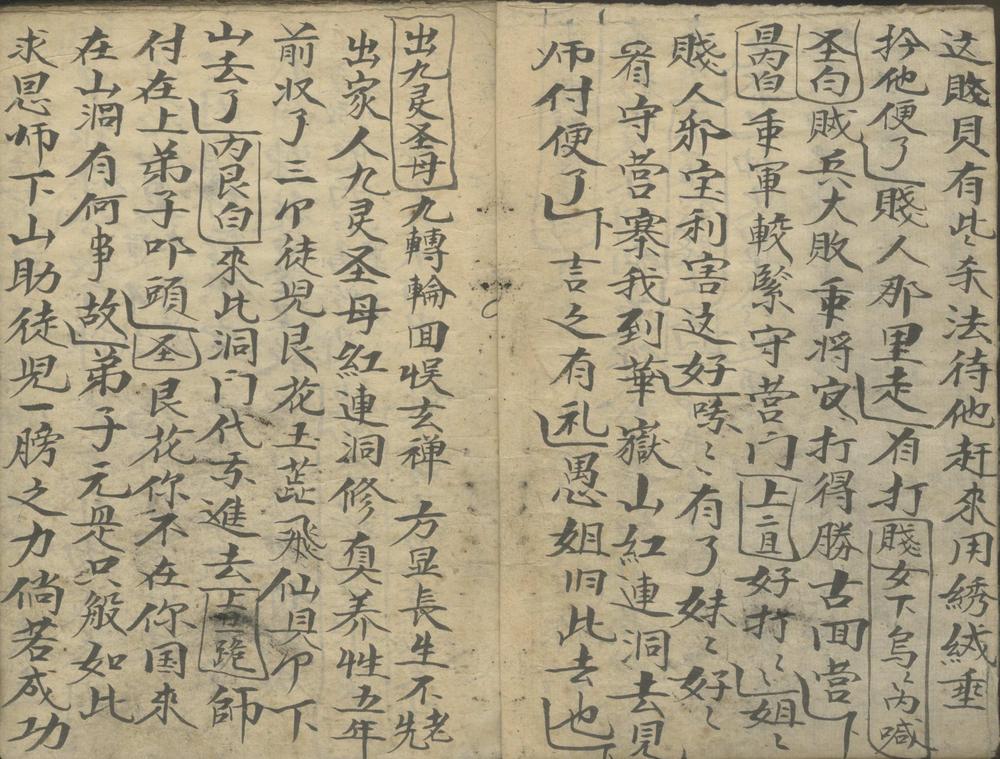 这賤貝有此〻杀法待他赶來用綉绒垂
扲他便了賤人那里走有打賤女下烏〻內喊
圣白贼兵大敗重将官打得勝古囬营下
昺內白重軍較緊守营门上二直好打〻姐〻
賤人邪宝利害这好嗦〻有了妹〻好〻
看守营寨我到華嶽山紅連洞去見
师付便了下言之有礼愚姐旧此去也下
出九灵圣母九轉輪囬悮玄禅方显長生不老先
出家人九灵圣母紅連洞修真养性五年
前収了三个徒児艮花玉芷飛仙具个下
山去了內艮白來此洞门代吾進去上直跪師
付在上弟子叩頭圣艮花你不在你国來
在山洞有何事故弟子元是只般如此
求恩师下山助徒児一膀之力倘若成功